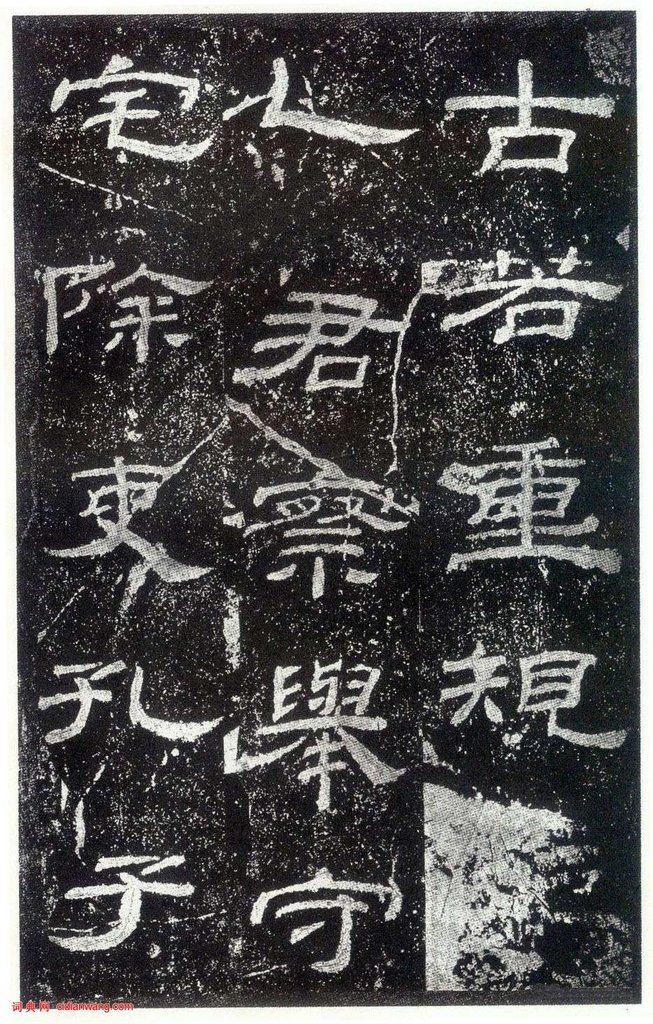 古若重規
乙君察舉守
宅除吏孔子
词典网 cidianwang.com